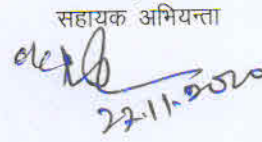 सहायक अभियन्ता
22.11.2020